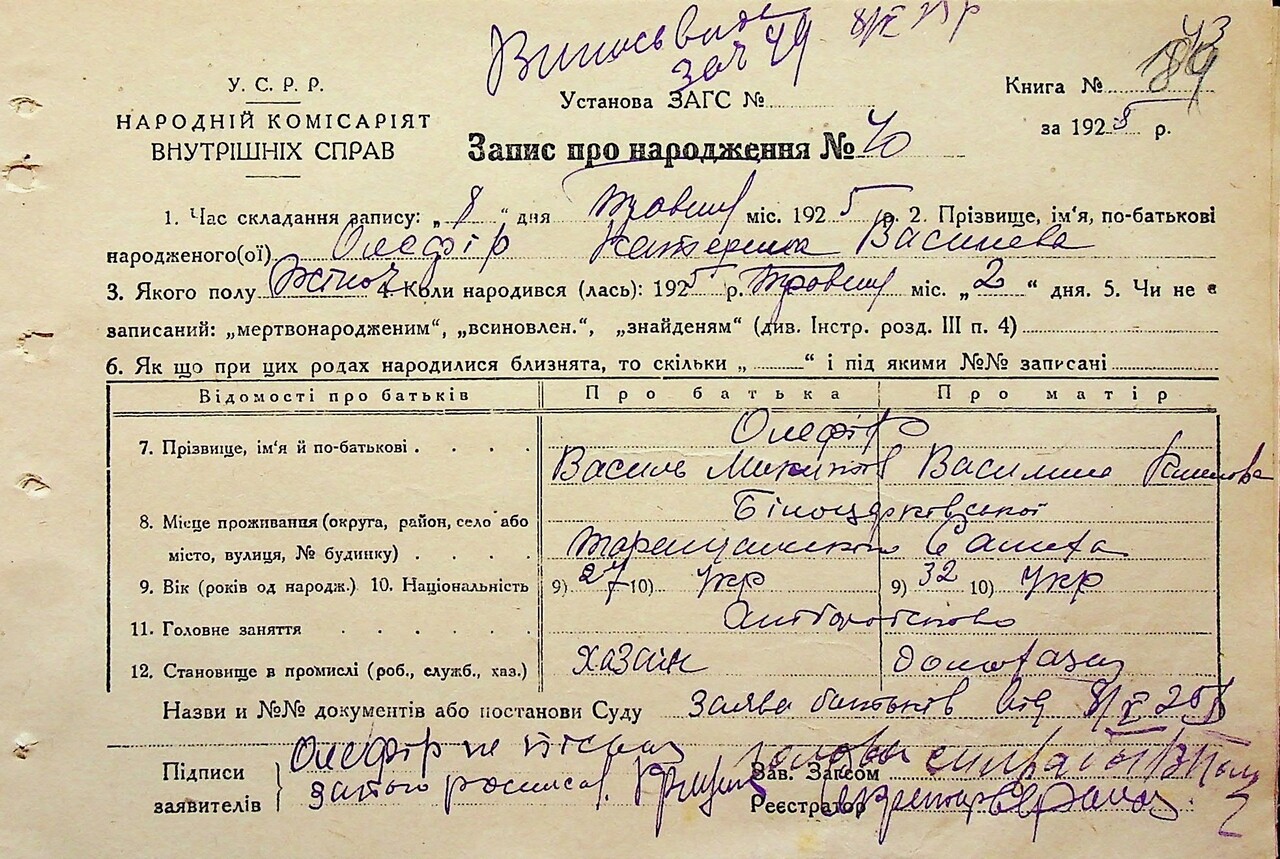 за № 49 8/IX 25 р
43
184
У. С. Р. Р.
НАРОДНІЙ КОМІСАРІЯТ
ВНУТРІШНІХ СПРАВ
Установа ЗАГС №
Книга №
за 1925 р.
Запис про народження №
1. Час складання запису: „ 8 “ дня травня міс. 1925 р. 2. Прізвище, ім'я, по-батькові
народженого(ої) Олефір Катерина Василева
3. Якого полу жіноч 4. Коли народився (лась): 1925 р. травня міс. „ 2 “ дня. 5. Чи не є
записаний: „мертвонародженим“, „всиновлен.“, „знайденям“ (див. Інстр. розд. III п. 4)
6. Як що при цих родах народилися близнята, то скільки „ “ і під якими №№ записані
Відомості про батьків Про батька Про матір
Олефір
7. Прізвище, ім'я й по-батькові
Василь Микитов Василина
Білоцерковської
8. Місце проживання (округа, район, село або
місто, вулиця, № будинку)
9. Вік (років од народж.) 10. Національність 9) 27 10) Укр 9) 32 10) Укр
11. Головне заняття
12. Становище в промислі (роб., служб., хаз.) хазаїн
Назви и №№ документів або постанови Суду Заява батьків від 8/V 25 р
Олефір не письм
Підписи
заявителів
за його росписа.
Зав. Загсом голова сільради
Реєстратор секретар